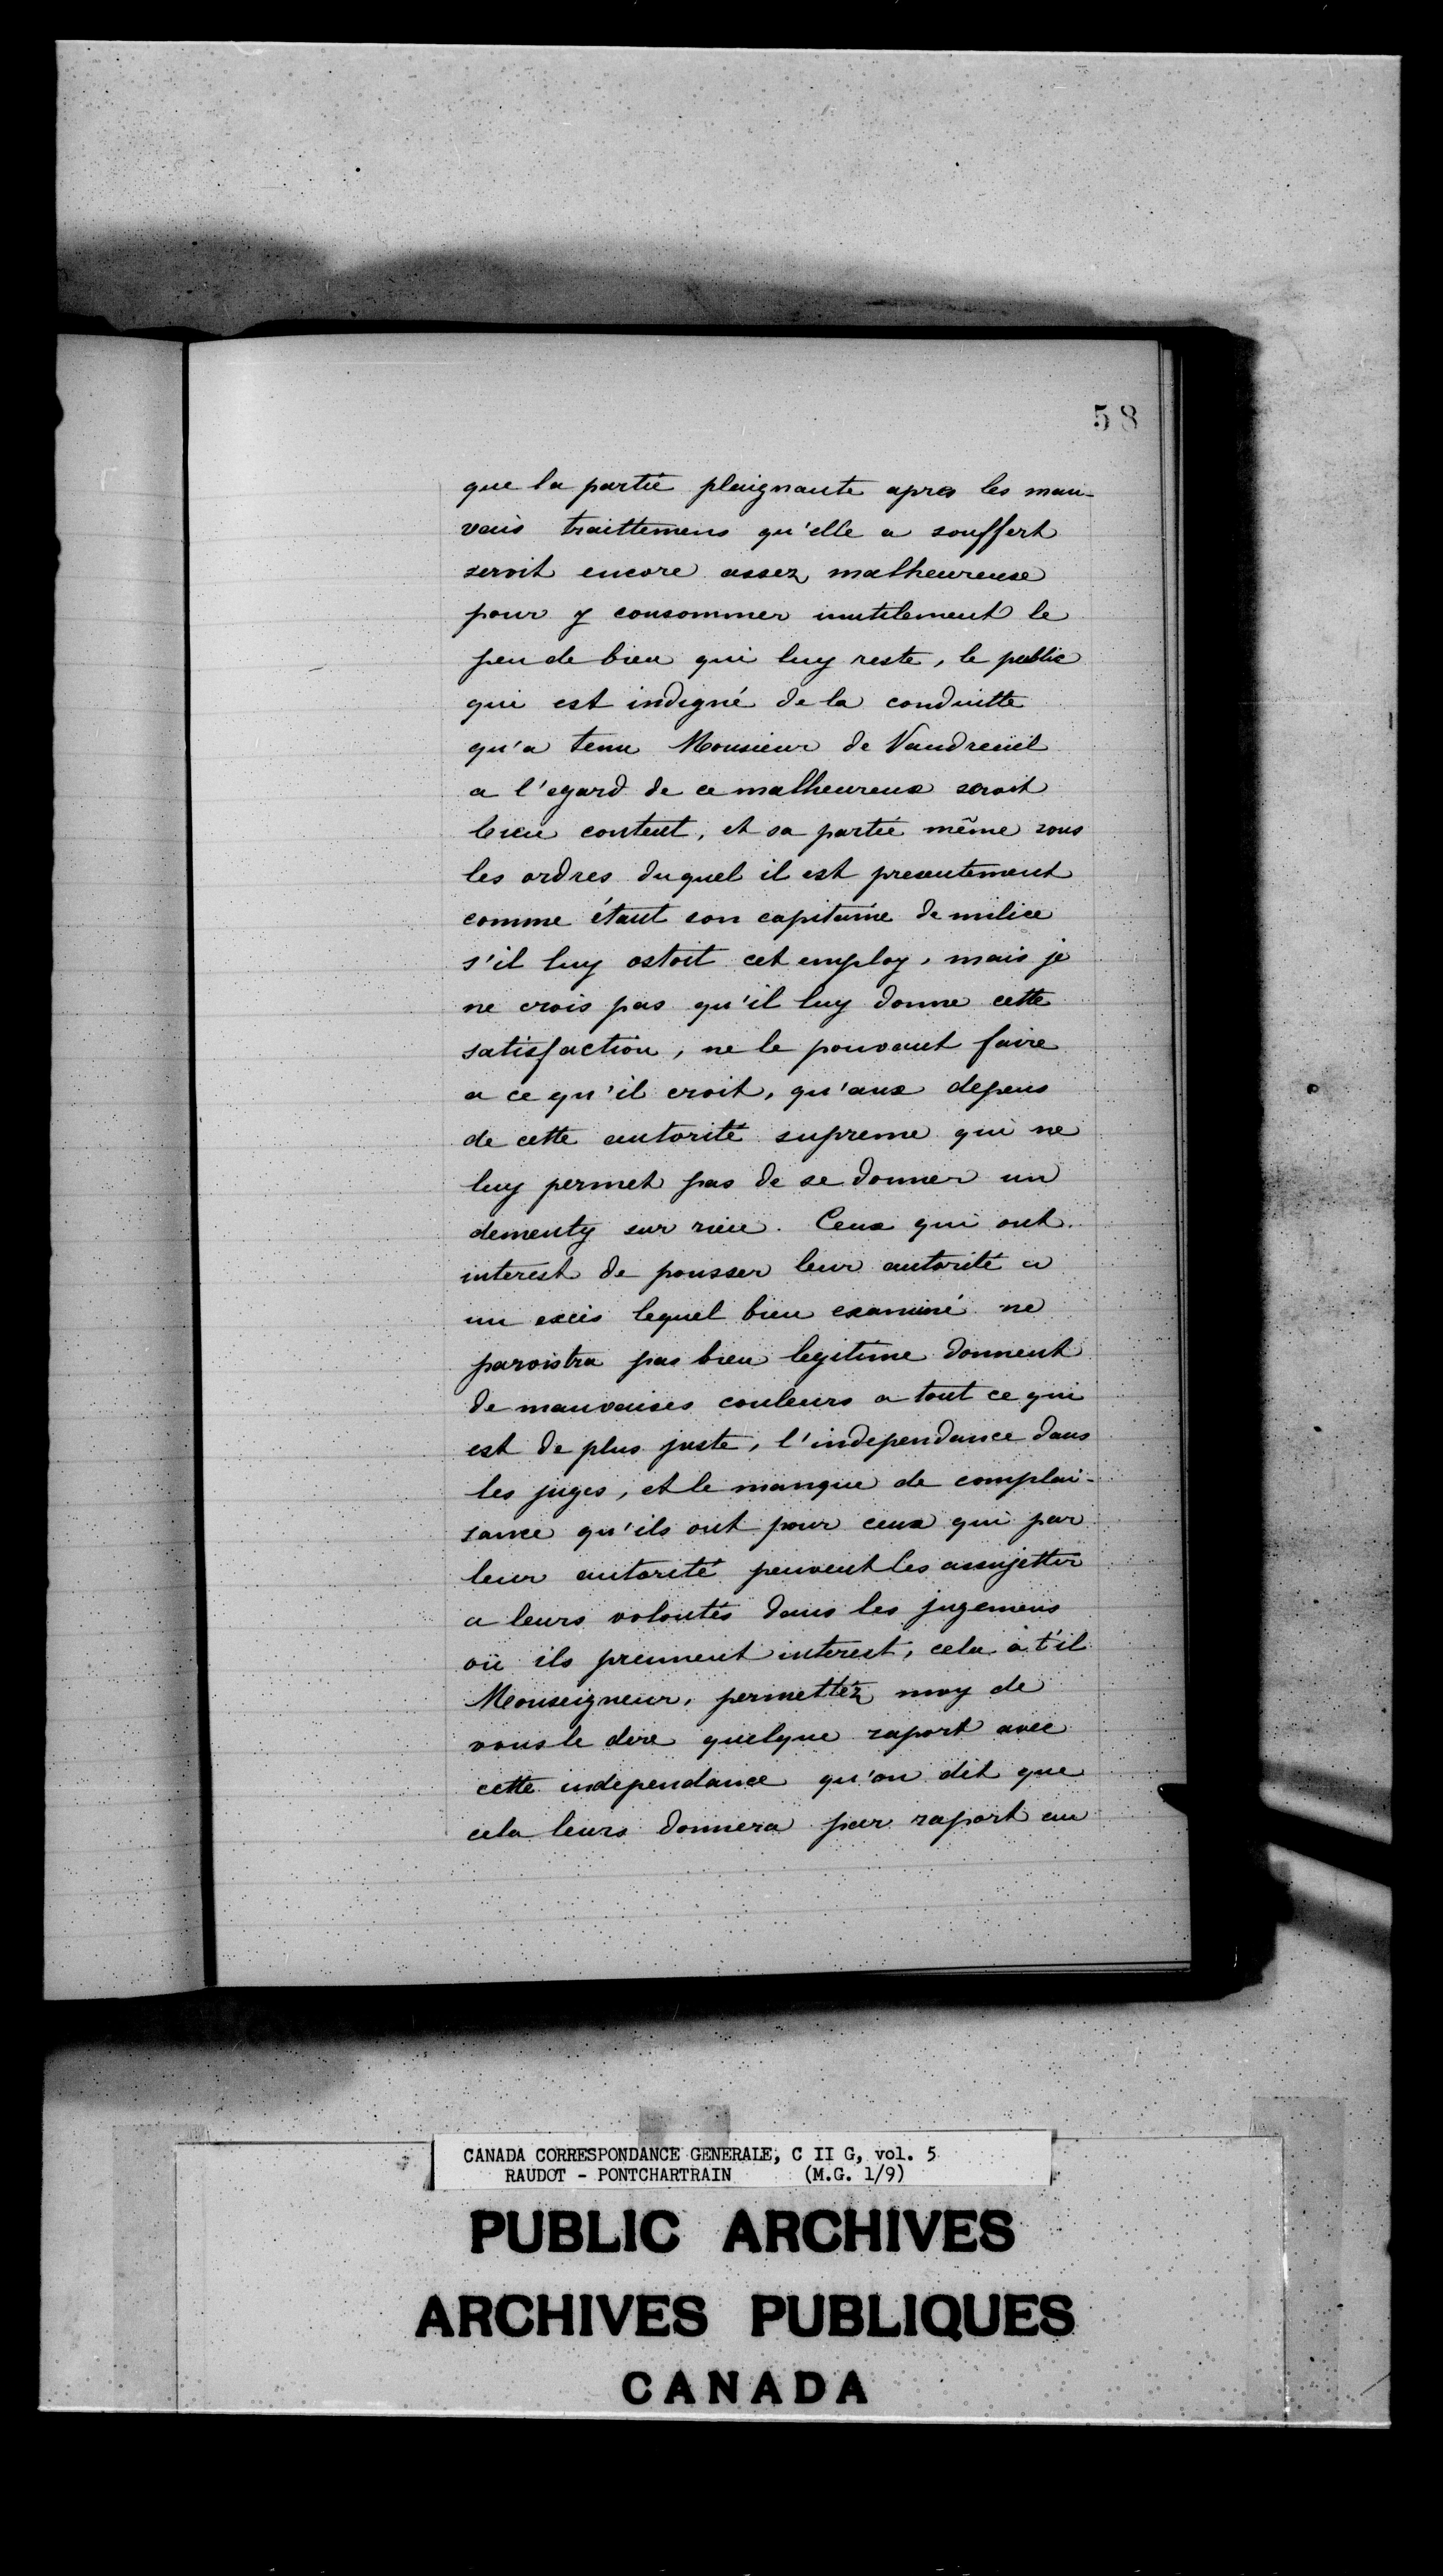 58
que la partie plaignante apres les mau-
vais traittemens qu'elle a souffert
seroit encore assez malheureuse
pour y consommer inutilement le
peu de bien qui luy reste, le public
qui est indigné de la conduitte
qu'a tenu Monsieur de Vaudreüil
a l'egard de ce malheureux seroit
bien content, et sa partie même sous
les ordres duquel il est presentement
comme étant son capitaine de milice
s'il luy ostoit cet employ, mais je
ne crois pas qu'il luy donne cette
satisfaction, ne le pouvant faire
a ce qu'il croit, qu'aux depens
de cette autorité supreme qui ne
luy permet pas de se donner un
dementy sur rien. Ceux qui ont
interest de pousser leur autorité a
un excès lequel bien examiné ne
paroistra pas bien legitime donnent
de mauvaises couleurs a tout ce qui
est de plus juste, l'independance dans
les juges, et le manque de complai-
sance qu'ils ont pour ceux qui par
leur autorité peuvent les assujettir
a leurs volontés dans les jugemens
où ils prennent interest, cela a t'il
Monseigneur, permettéz moy de
vous le dire quelque raport avec
cette independance qu'on dit que
cela leurs donnera par raport au
CANADA CORRESPONDANCE GENERALE, C II G, vol. 5
RAUDOT - PONTCHARTRAIN (M.G. 1/9)
PUBLIC ARCHIVES
ARCHIVES PUBLIQUES
CANADA